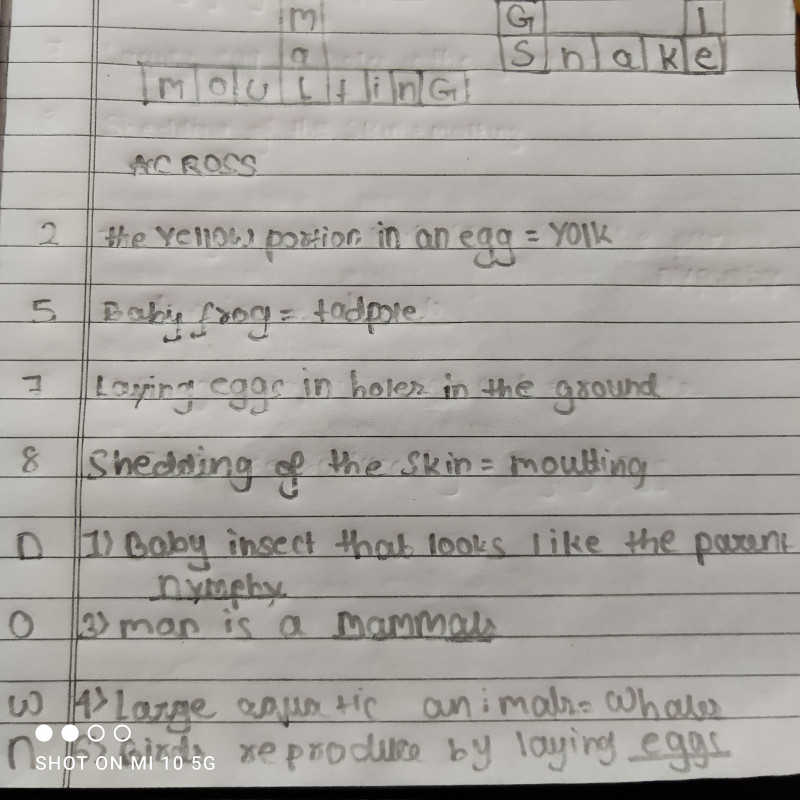 m G l
a S n a k e
m o u l t i n G
ACROSS
2 the yellow portion in an egg = Yolk
5 Baby frog = tadpole
7 Laying eggs in holes in the ground
8 Shedding of the skin = moulting
D 1) Baby insect that looks like the parent
nymphy
O 3) man is a mammals
W 4) Large aquatic animals = Whales
n 6) Birds reproduce by laying eggs
SHOT ON MI 10 5G